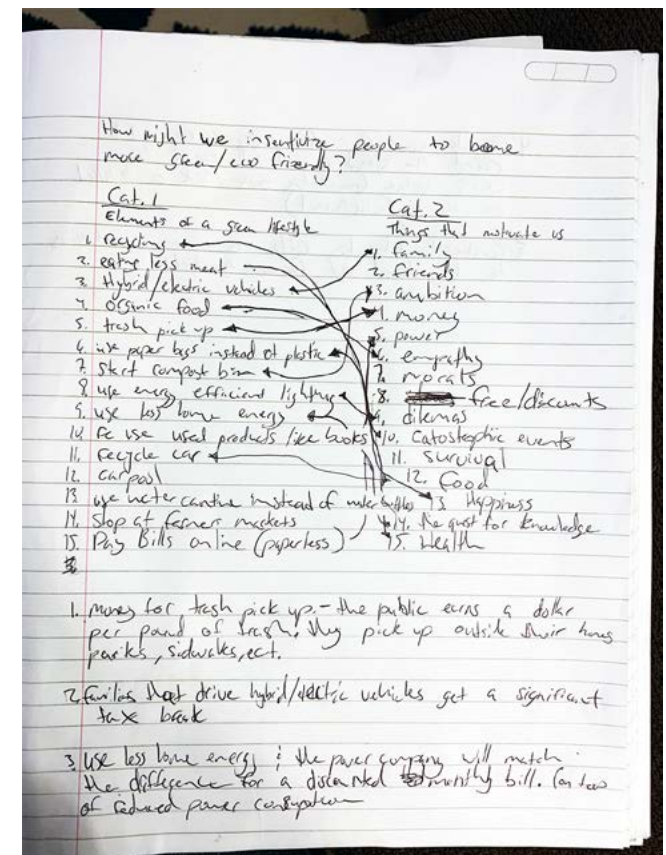 How might we insentivize people to become
more green/eco friendly?
Cat. 1
Elements of a green lifestyle
1. recycling
2. eating less meat
3. Hybrid/electric vehicles
4. organic food
5. trash pick up
6. use paper bags instead of plastic
7. Start compost bin
8. use energy efficient lighting
9. use less home energy
10. re use used products like books
11. recycle car
12. carpool
13. use water cantine instead of water bottles
14. Shop at farmer markets
15. Pay Bills online (paperless)
Cat. 2
Things that motivate us
1. family
2. friends
3. ambition
4. money
5. power
6. empathy
7. morals
8. free/discounts
9. dilemas
10. Catostrophic events
11. survival
12. food
13. Happiness
14. the quest for knowledge
15. Health
1. money for trash pick up. - the public earns a dollar
per pound of trash they pick up outside their homes
parks, sidewalks, ect.
2. families that drive hybrid/electric vehicles get a significant
tax break
3. use less home energy & the power company will match
the difference for a discounted monthly bill.
of reduced power consumption